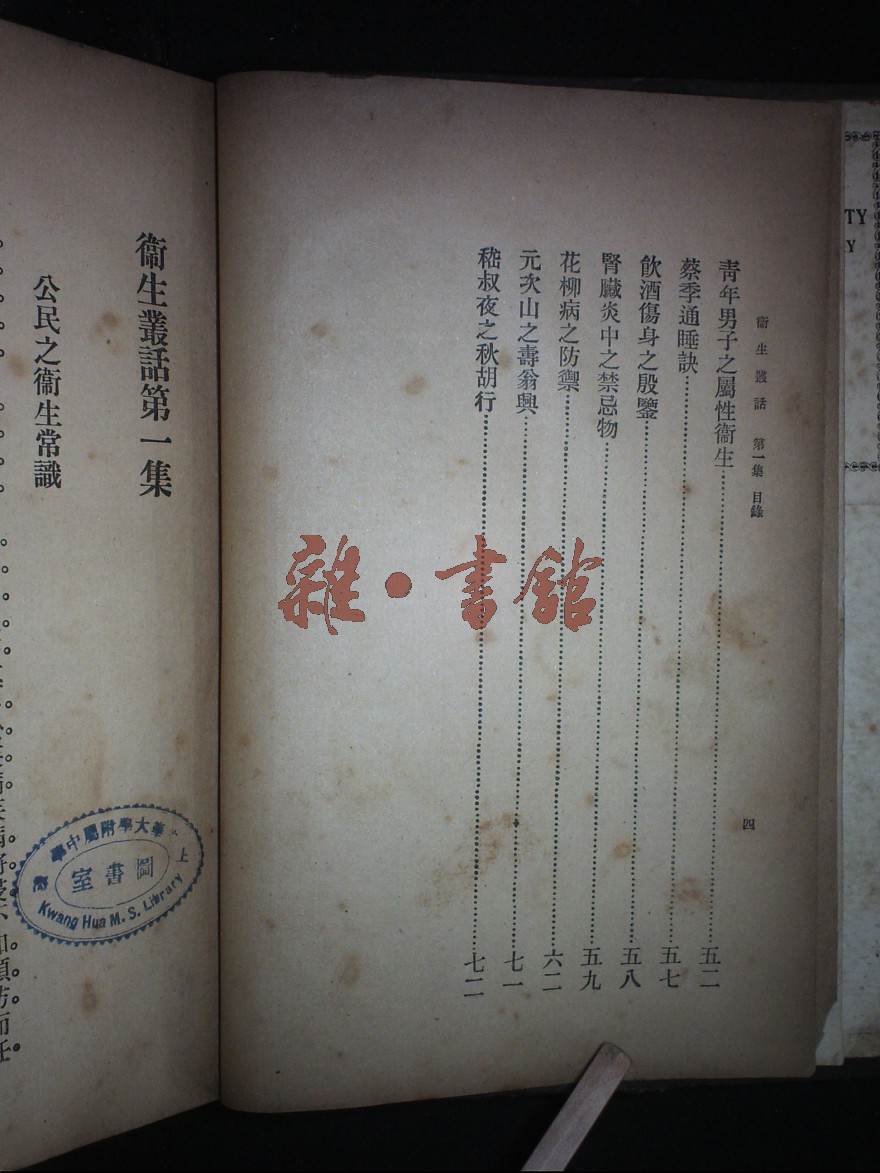 TY
Y
衞生叢話 第一集 目錄
四
靑年男子之屬性衞生 五二
蔡季通睡訣 五七
飮酒傷身之殷鑒 五八
腎臟炎中之禁忌物 五九
花柳病之防禦 六二
元次山之壽翁興 七一
嵇叔夜之秋胡行 七二
雜·書館
衞生叢話第一集
公民之衞生常識
華大學附屬中學
上
圖書室
Kwang Hua M. S. Library